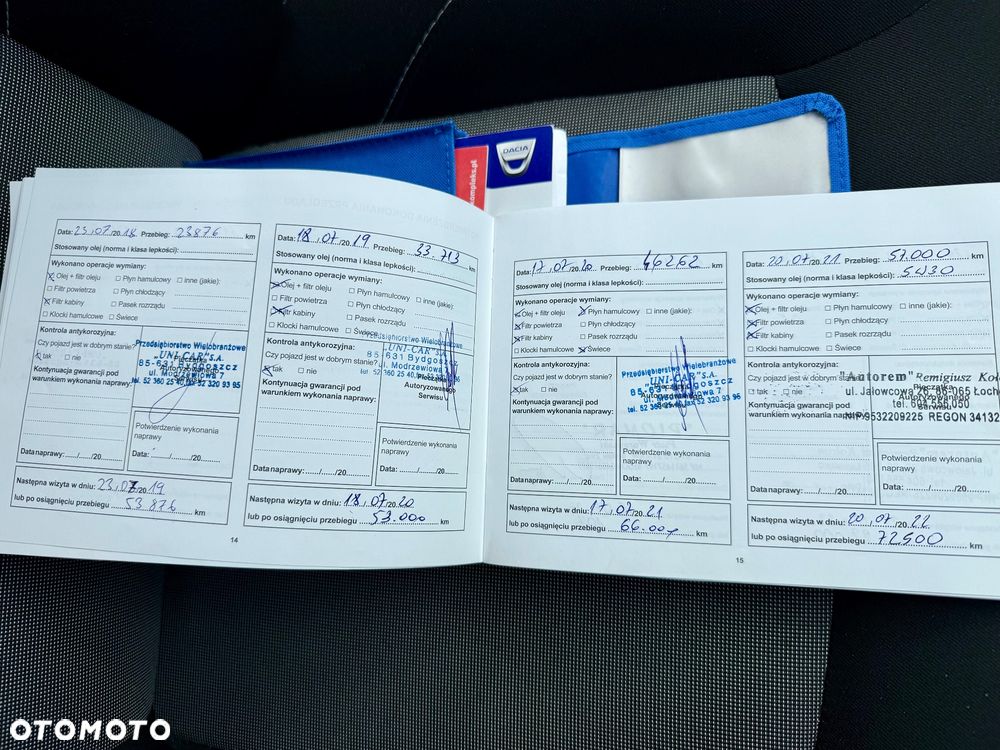 DACIA
kompleks.pl
Data: 23.07.2018 Przebieg: 23876 km
Stosowany olej (norma i klasa lepkości):
Wykonano operacje wymiany:
Olej + filtr oleju
Płyn hamulcowy
inne (jakie):
Filtr powietrza
Płyn chłodzący
Filtr kabiny
Pasek rozrządu
Klocki hamulcowe
Świece
Kontrola antykorozyjna:
Czy pojazd jest w dobrym stanie?
tak nie
Kontynuacja gwarancji pod
warunkiem wykonania naprawy:
Przedsiębiorstwo Wielobranżowe
"UNI-CAR" S.A.
85-631 Bydgoszcz
ul. Modrzewiowa 7
tel. 52 360 25 40, fax 52 320 93 95
Pieczątka
Autoryzowanego
Potwierdzenie wykonania
naprawy
Data naprawy: ....../....../20......
Data: ....../....../20......
Następna wizyta w dniu: 23.07.2019
lub po osiągnięciu przebiegu 53876 km
14
Data: 18.07.2019 Przebieg: 33.713 km
Stosowany olej (norma i klasa lepkości):
Wykonano operacje wymiany:
Olej + filtr oleju
Płyn hamulcowy
inne (jakie):
Filtr powietrza
Płyn chłodzący
Filtr kabiny
Pasek rozrządu
Klocki hamulcowe
Świece
Kontrola antykorozyjna:
Czy pojazd jest w dobrym stanie?
tak nie
Kontynuacja gwarancji pod
warunkiem wykonania naprawy:
Przedsiębiorstwo Wielobranżowe
"UNI-CAR" S.A.
85-631 Bydgoszcz
ul. Modrzewiowa 7
Pieczątka
Autoryzowanego
Serwisu
Potwierdzenie wykonania
naprawy
Data naprawy: ....../....../20......
Data: ....../....../20......
Następna wizyta w dniu: 18.07.2020
lub po osiągnięciu przebiegu 53.000 km
Data: 17.07.2020 Przebieg: 46262 km
Stosowany olej (norma i klasa lepkości):
Wykonano operacje wymiany:
Olej + filtr oleju
Płyn hamulcowy
inne (jakie):
Filtr powietrza
Płyn chłodzący
Filtr kabiny
Pasek rozrządu
Klocki hamulcowe
Świece
Kontrola antykorozyjna:
Czy pojazd jest w dobrym stanie?
tak nie
Kontynuacja gwarancji pod
warunkiem wykonania naprawy:
Przedsiębiorstwo Wielobranżowe
"UNI-CAR" S.A.
85-631 Bydgoszcz
ul. Modrzewiowa 7
tel. 52 360 25 40, fax 52 320 93 96
Potwierdzenie wykonania
naprawy
Data naprawy: ....../....../20......
Data: ....../....../20......
Następna wizyta w dniu: 17.07.2021
lub po osiągnięciu przebiegu 66.000 km
15
Data: 20.07.2021 Przebieg: 57.000 km
Stosowany olej (norma i klasa lepkości): 5W30
Wykonano operacje wymiany:
Olej + filtr oleju
Płyn hamulcowy
inne (jakie):
Filtr powietrza
Płyn chłodzący
Filtr kabiny
Pasek rozrządu
Klocki hamulcowe
Świece
Kontrola antykorozyjna:
Czy pojazd jest w dobrym stanie?
tak nie
Kontynuacja gwarancji pod
warunkiem wykonania naprawy:
"Autorem" Remigiusz
ul. Jałowcowa 26, 86-065 Łocho
tel. 694 596 050
NIP 9532209225 REGON 34132
Pieczątka
Autoryzowanego
Serwisu
Potwierdzenie wykonania
naprawy
Data naprawy: ....../....../20......
Data: ....../....../20......
Następna wizyta w dniu: 20.07.2022
lub po osiągnięciu przebiegu 72500 km
OTOMOTO